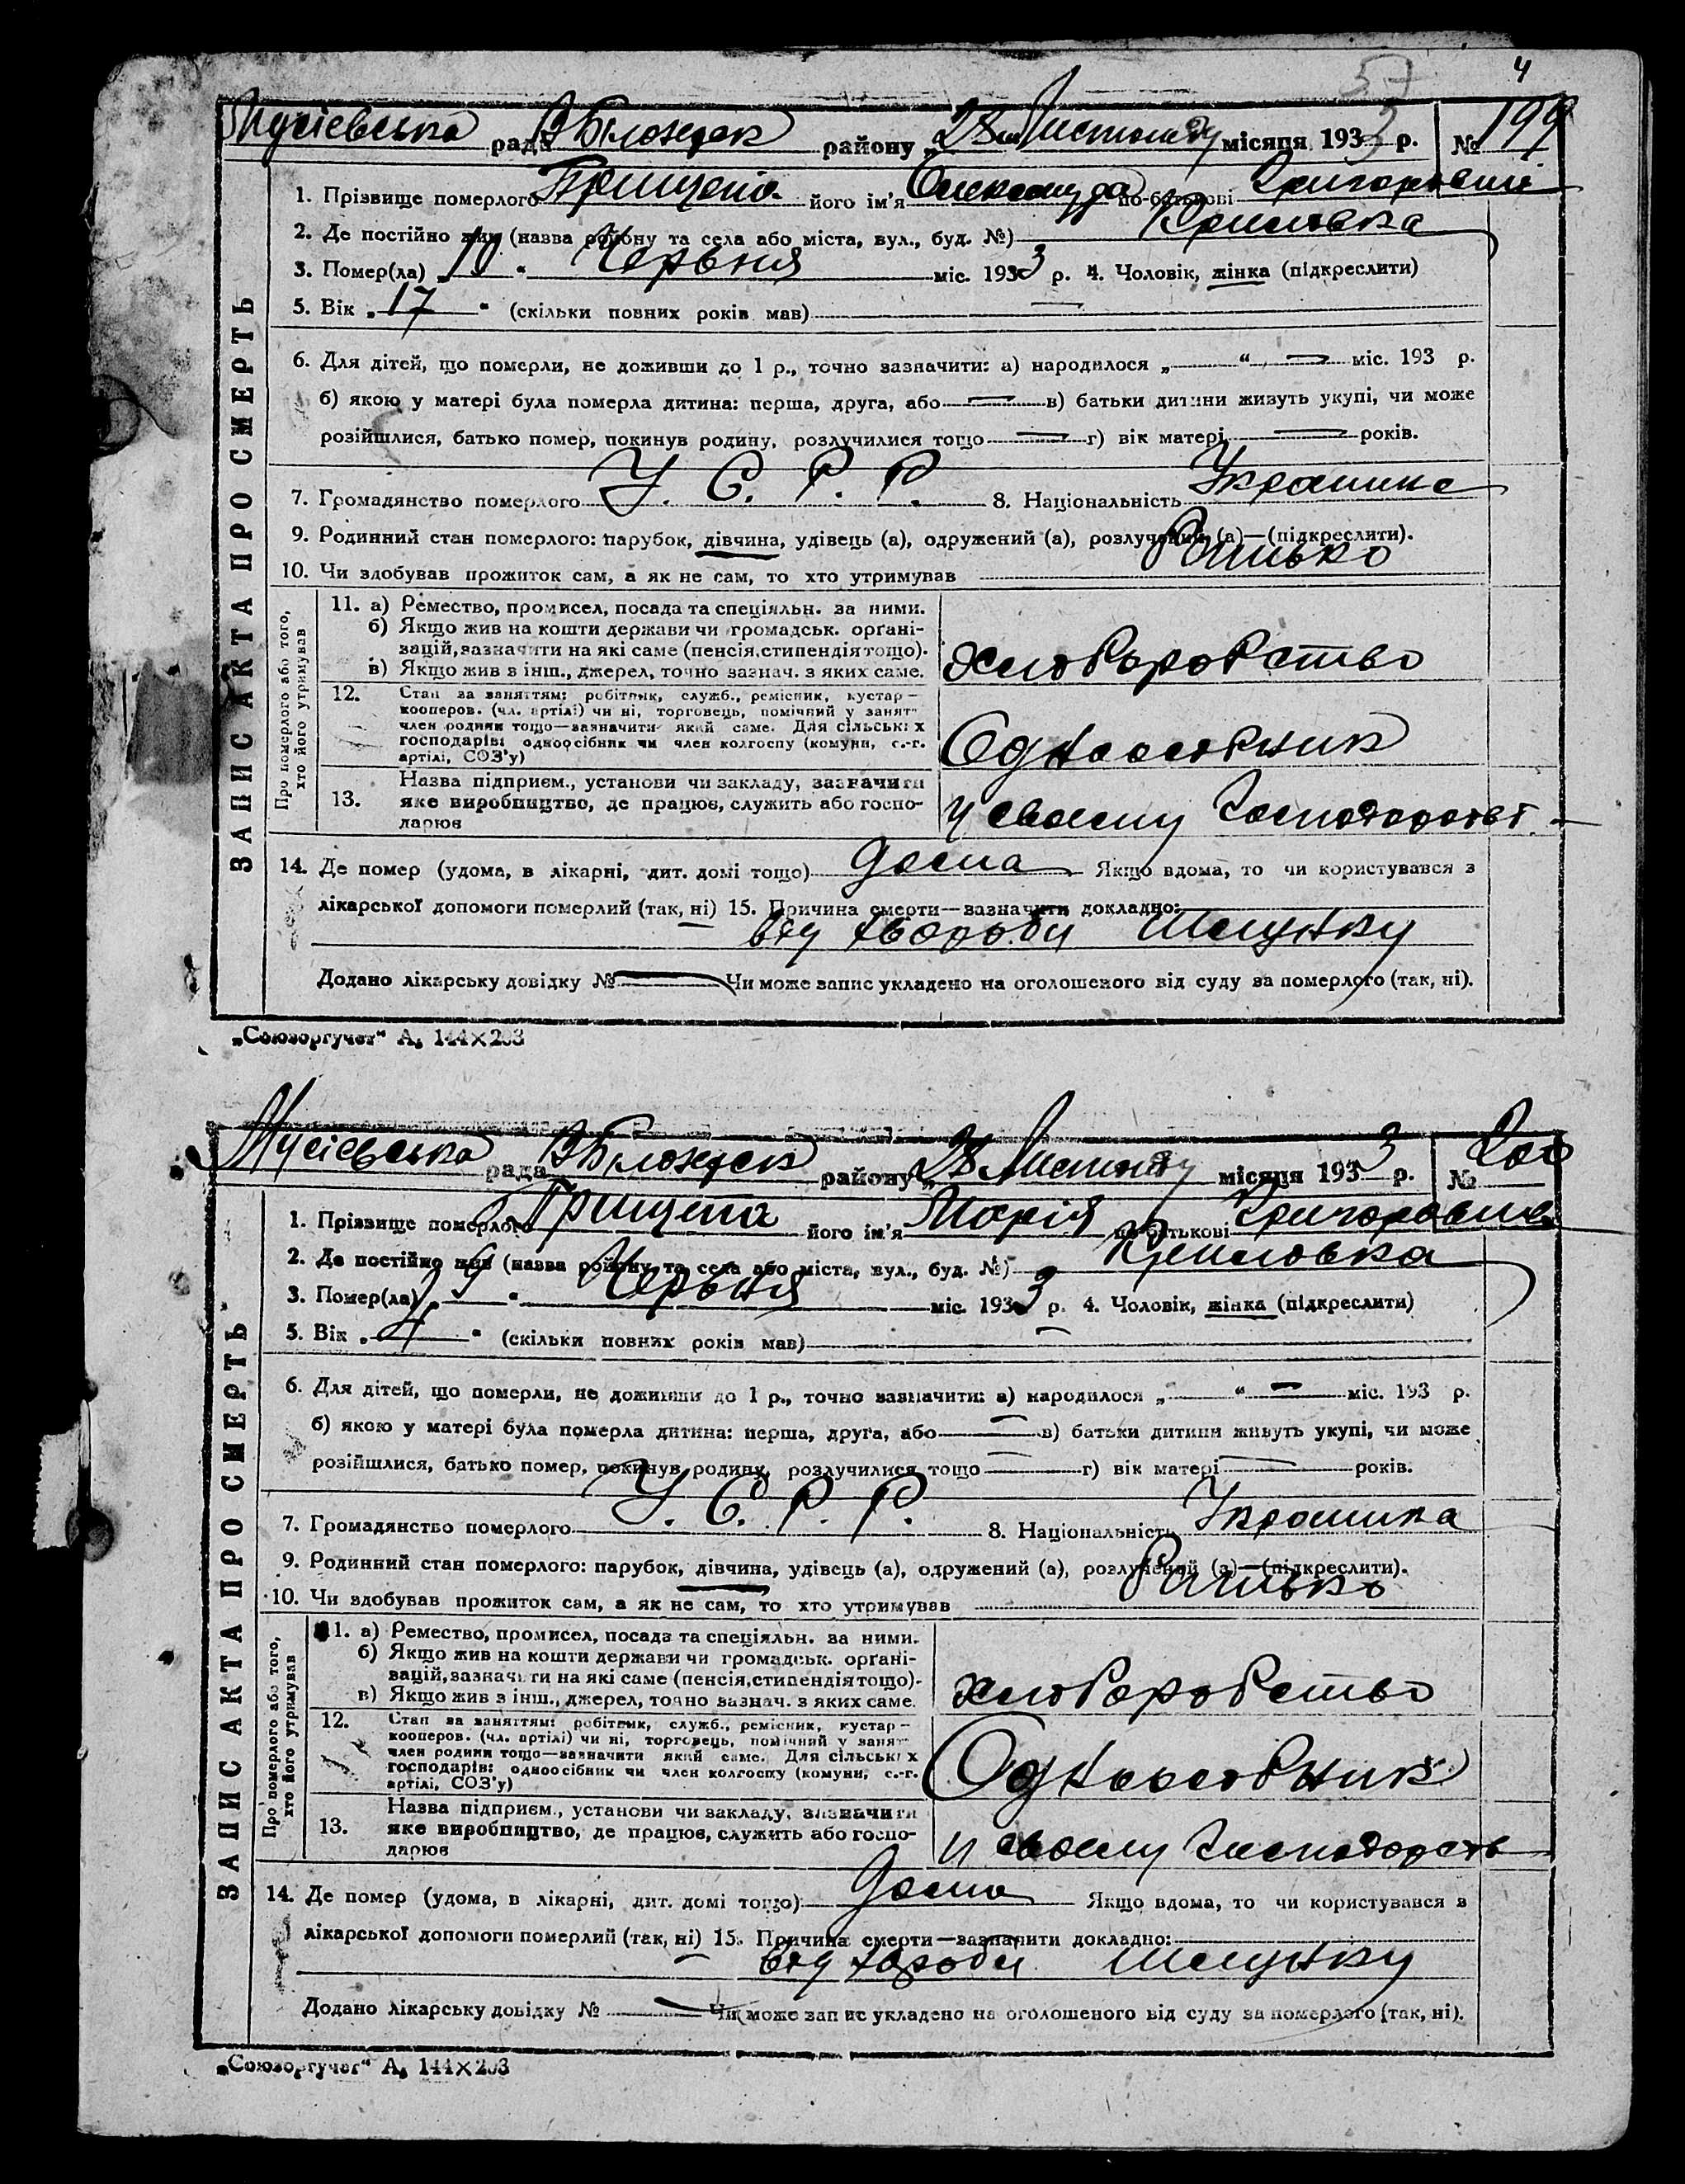 57 4
Мусієвська рада В Білозерск району „28 Листопаду місяця 1933 р. № 199
1. Прізвище померлого Грищепа його ім'я Олександра по-батькові Григоровна
2. Де постійно жив (назва району та села або міста, вул., буд. №) Крисовка
3. Помер(ла) „10" Червня міс. 1933 р. 4. Чоловік, жінка (підкреслити)
5. Вік „17" (скільки повних років мав)
6. Для дітей, що померли, не доживши до 1 р., точно зазначити: а) народилося „ “ міс. 193 р.
б) якою у матері була померла дитина: перша, друга, або в) батьки дитини живуть укупі, чи може
розійшлися, батько помер, покинув родину, розлучилися тощо г) вік матері років.
7. Громадянство померлого У. С. Р. Р. 8. Національність Українка
9. Родинний стан померлого: парубок, дівчина, удівець (а), одружений (а), розлучений (а)—(підкреслити).
10. Чи здобував прожиток сам, а як не сам, то хто утримував Батько
ЗАПИС АКТА ПРО СМЕРТЬ
Про померлого або того, хто його утримував
11. а) Ремество, промисел, посада та спеціяльн. за ними.
б) Якщо жив на кошти держави чи громадськ. орґані-
зацій, зазначити на які саме (пенсія, стипендія тощо).
в) Якщо жив з інш., джерел, точно зазнач. з яких саме.
хлоборобство
12. Стан за заняттям: робітник, служб., ремісник, кустар —
кооперов. (чл. артілі) чи ні, торговець, помічний у занят-
член родини тощо—зазначити який саме. Для сільських
господарів: одноосібник чи член колгоспу (комуни, с.-г.
артілі, СОЗ'у)
Одноособник
13. Назва підприєм., установи чи закладу, зазначити
яке виробництво, де працює, служить або госпо-
дарює
у своєму господарстві
14. Де помер (удома, в лікарні, дит. домі тощо) Дома Якщо вдома, то чи користувався з
лікарської допомоги померлий (так, ні) 15. Причина смерти—зазначити докладно:
від хвороби шлунку
Додано лікарську довідку № Чи може запис укладено на оголошеного від суду за померлого (так, ні).
„Союзоргучет" А₅ 144×203
Мусієвська рада В Білозерск району „28 Листопаду місяця 1933 р. № 200
1. Прізвище померлого Грищепа його ім'я Марія по-батькові Григоровна
2. Де постійно жив (назва району та села або міста, вул., буд. №) Крисовка
3. Помер(ла) „ " Червня міс. 1933 р. 4. Чоловік, жінка (підкреслити)
5. Вік „ " (скільки повних років мав)
6. Для дітей, що померли, не доживши до 1 р., точно зазначити: а) народилося „ “ міс. 193 р.
б) якою у матері була померла дитина: перша, друга, або в) батьки дитини живуть укупі, чи може
розійшлися, батько помер, покинув родину, розлучилися тощо г) вік матері років.
7. Громадянство померлого У. С. Р. Р. 8. Національність Українка
9. Родинний стан померлого: парубок, дівчина, удівець (а), одружений (а), розлучений (а)—(підкреслити).
10. Чи здобував прожиток сам, а як не сам, то хто утримував Батько
ЗАПИС АКТА ПРО СМЕРТЬ
Про померлого або того, хто його утримував
11. а) Ремество, промисел, посада та спеціяльн. за ними.
б) Якщо жив на кошти держави чи громадськ. орґані-
зацій, зазначити на які саме (пенсія, стипендія тощо).
в) Якщо жив з інш., джерел, точно зазнач. з яких саме.
хлоборобство
12. Стан за заняттям: робітник, служб., ремісник, кустар —
кооперов. (чл. артілі) чи ні, торговець, помічний у занят-
член родини тощо—зазначити який саме. Для сільських
господарів: одноосібник чи член колгоспу (комуни, с.-г.
артілі, СОЗ'у)
Одноособник
13. Назва підприєм., установи чи закладу, зазначити
яке виробництво, де працює, служить або госпо-
дарює
у своєму господарств
14. Де помер (удома, в лікарні, дит. домі тощо) Дома Якщо вдома, то чи користувався з
лікарської допомоги померлий (так, ні) 15. Причина смерти—зазначити докладно:
від хороби шлунку
Додано лікарську довідку № Чи може запис укладено на оголошеного від суду за померлого (так, ні).
„Союзоргучет" А₅ 144×203